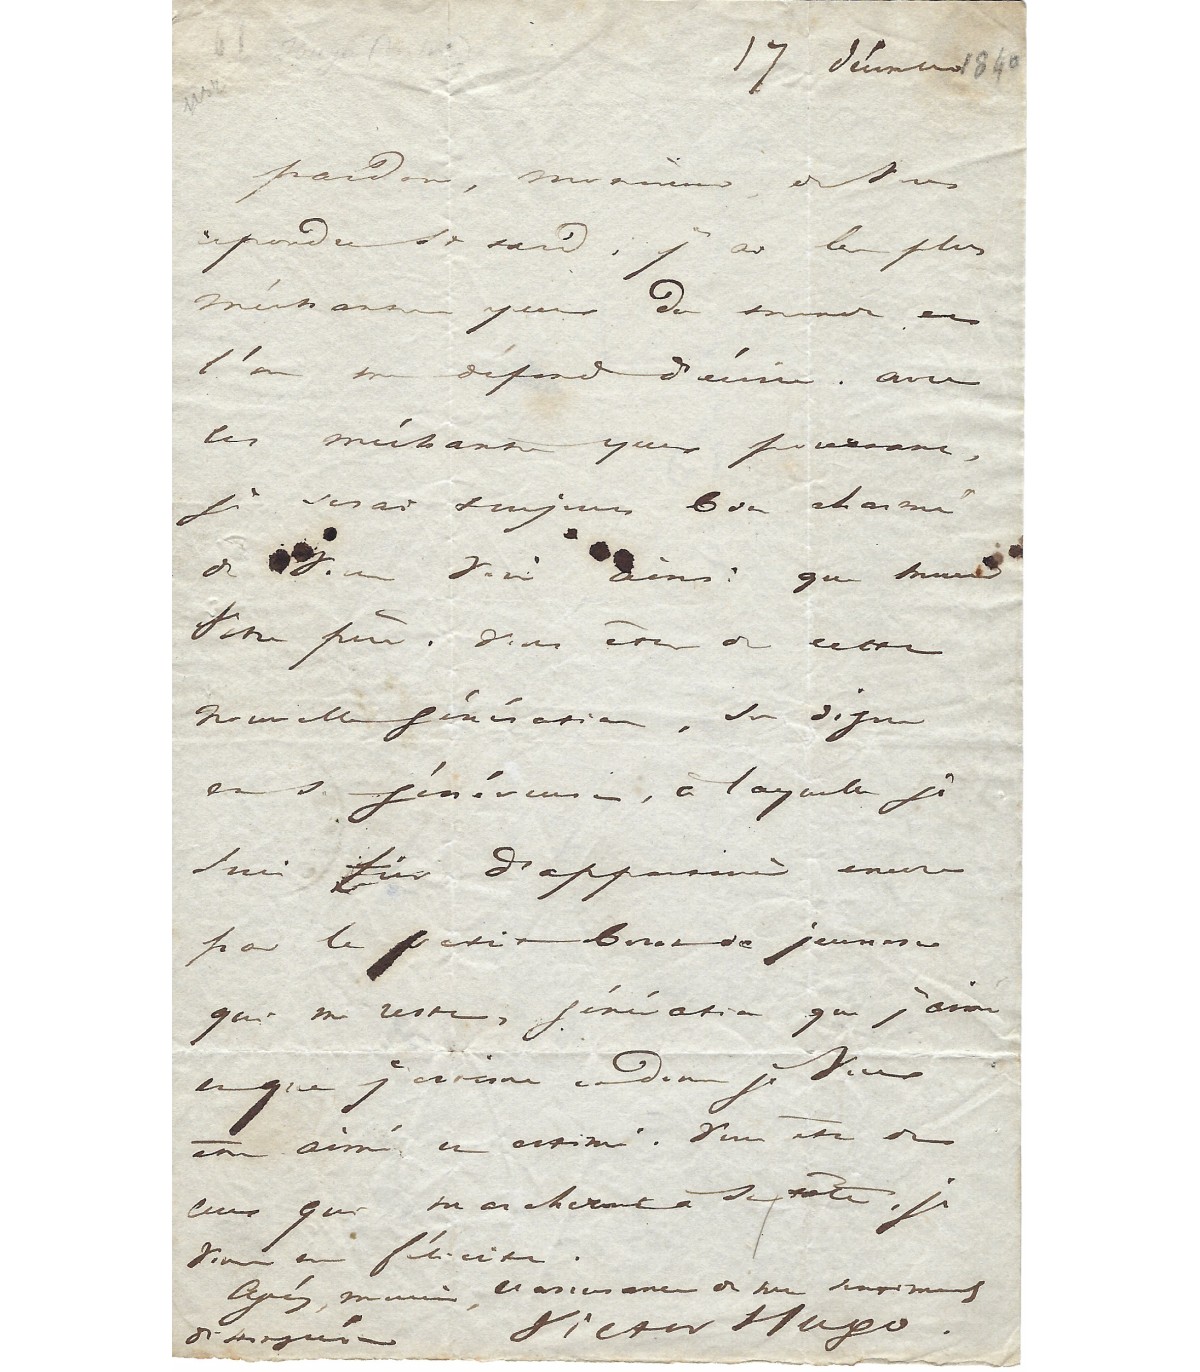 17 décembre 1840
pardon, monsieur, de vous
répondre si tard, j'ai les plus
méchants yeux du monde et
l'on me défend d'écrire. avec
ces méchants yeux pourtant,
je serai toujours bien charmé
de vous voir ainsi que
votre père. vous êtes de cette
nouvelle génération, si digne
et si généreuse, à laquelle je
suis fier d'appartenir encore
par le petit bout de jeunesse
qui me reste, génération que j'aime
et que j'estime et dont je veux
être aimé et estimé. vous êtes de
ceux qui marcheront à sa tête, je
vous en félicite.
Agréez, monsieur, l'assurance de mes sentiments
distingués
Victor Hugo.